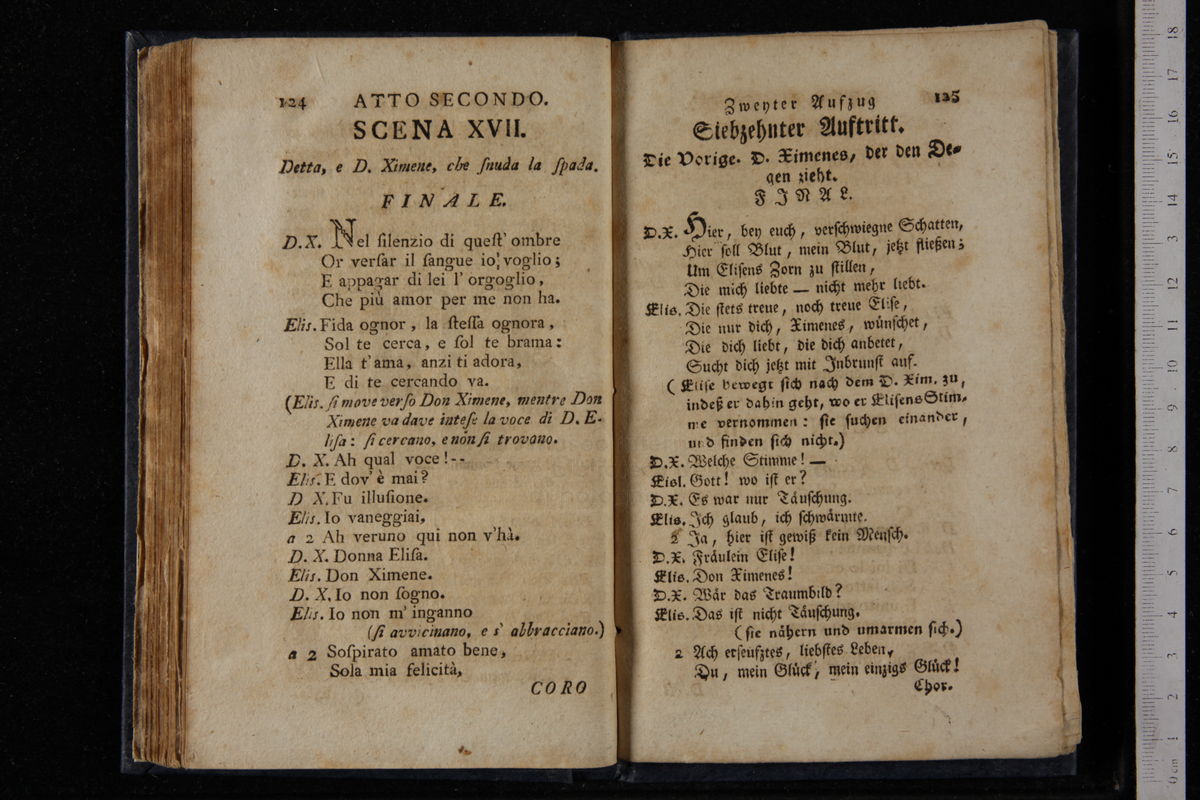 124 ATTO SECONDO.
SCENA XVII.
Detta, e D. Ximene, che ſnuda la ſpada.
FINALE.
D. X. Nel ſilenzio di queſt' ombre
Or verſar il ſangue io voglio;
E appagar di lei l' orgoglio,
Che più amor per me non ha.
Elis. Fida ognor, la ſteſſa ognora,
Sol te cerca, e ſol te brama:
Ella t' ama, anzi ti adora,
E di te cercando va.
(Elis. ſi move verſo Don Ximene, mentre Don
Ximene va dave inteſe la voce di D. E-
liſa: ſi cercano, e non ſi trovano.
D. X. Ah qual voce!--
Elis. E dov' è mai?
D X. Fu illuſione.
Elis. Io vaneggiai,
a 2 Ah veruno qui non v'hà.
D. X. Donna Eliſa.
Elis. Don Ximene.
D. X. Io non ſogno.
Elis. Io non m' inganno
(ſi avvicinano, e s' abbracciano.)
a 2 Soſpirato amato bene,
Sola mia felicità,
CORO
Zweyter Aufzug 125
Siebzehnter Auftritt.
Die Vorige. D. Ximenes, der den De-
gen zieht.
FINAL.
D.X. Hier, bey euch, verſchwiegne Schatten,
Hier ſoll Blut, mein Blut, jetzt fließen;
Um Eliſens Zorn zu ſtillen,
Die mich liebte — nicht mehr liebt.
Elis. Die ſtets treue, noch treue Eliſe,
Die nur dich, Ximenes, wünſchet,
Die dich liebt, die dich anbetet,
Sucht dich jetzt mit Inbrunſt auf.
(Eliſe bewegt ſich nach dem D. Xim. zu,
indeß er dahin geht, wo er Eliſens Stim-
me vernommen: ſie ſuchen einander,
und finden ſich nicht.)
D.X. Welche Stimme! —
Eisl. Gott! wo iſt er?
D.X. Es war nur Täuſchung.
Elis. Ich glaub, ich ſchwärmte.
2 Ja, hier iſt gewiß kein Menſch.
D.X. Fräulein Eliſe!
Elis. Don Ximenes!
D.X. Wär das Traumbild?
Elis. Das iſt nicht Täuſchung.
(ſie nähern und umarmen ſich.)
2 Ach erſeufztes, liebſtes Leben,
Du, mein Glück, mein einzigs Glück!
Chor.
18
17
16
15
14
13
12
11
10
9
8
7
6
5
4
3
2
1
0 cm